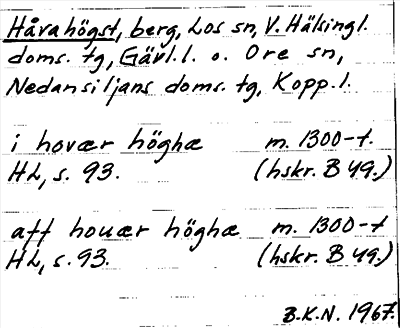 Håvahögst, berg, Los sn, V. Hälsingl.
doms. tg, Gävl.l. o. Ore sn,
Nedansiljans doms. tg, Kopp.l.
i hovær höghæ m. 1300-t.
HL, s. 93. (hskr. B 49.)
aff houær höghæ m. 1300-t
HL, s. 93. (hskr. B 49.)
B.K.N. 1967.